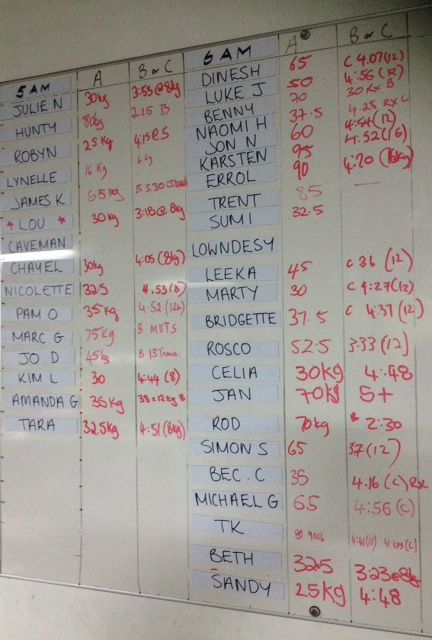 5 AM A B or C
JULIE N 30kg 3:53@8kg
HUNTY 80kg 2:15 B
ROBYN 25kg 4:15@5
LYNELLE 16kg 6kg
JAMES K 65kg
* LOU * 30kg 3:18@8kg
CAVEMAN
CHAYEL 30kg 4:05 (8kg)
NICOLETTE 32.5 4.53(8)
PAM O 35kg 4:52 (12k)
MARC G 75kg 8 MUTS
JO.D 45kg
KIM L 30 4:44 (8)
AMANDA G 35kg 38x12kg B
TARA 32.5kg 4:51(8kg)
6 AM A B or C
DINESH 65 C 4.07(12)
LUKE J 50 4:56 (12)
BENNY 70 30 Rx B
NAOMI H 37.5 4.25 Rx C
JON N 60 4:54 (12)
KARSTEN 95 4:52 (16)
ERROL 90 4:20 (16kg)
TRENT 85
SUMI 32.5
LOWNDESY
LEEKA 45 C 36 (12)
MARTY 30 C 4:27(12)
BRIDGETTE 37.5 C 4:37 (12)
ROSCO 52.5 3:33 (12)
CELIA 30kg 4:48
JAN 70kg 5+
ROD 70kg B 2:30
SIMON S 65 37(12)
BEC.C 35 4.16 (C) Rx
MICHAEL G 65 4:56 (C)
TK
BETH 32.5 3:23@8kg
SANDY 25kg 4:48